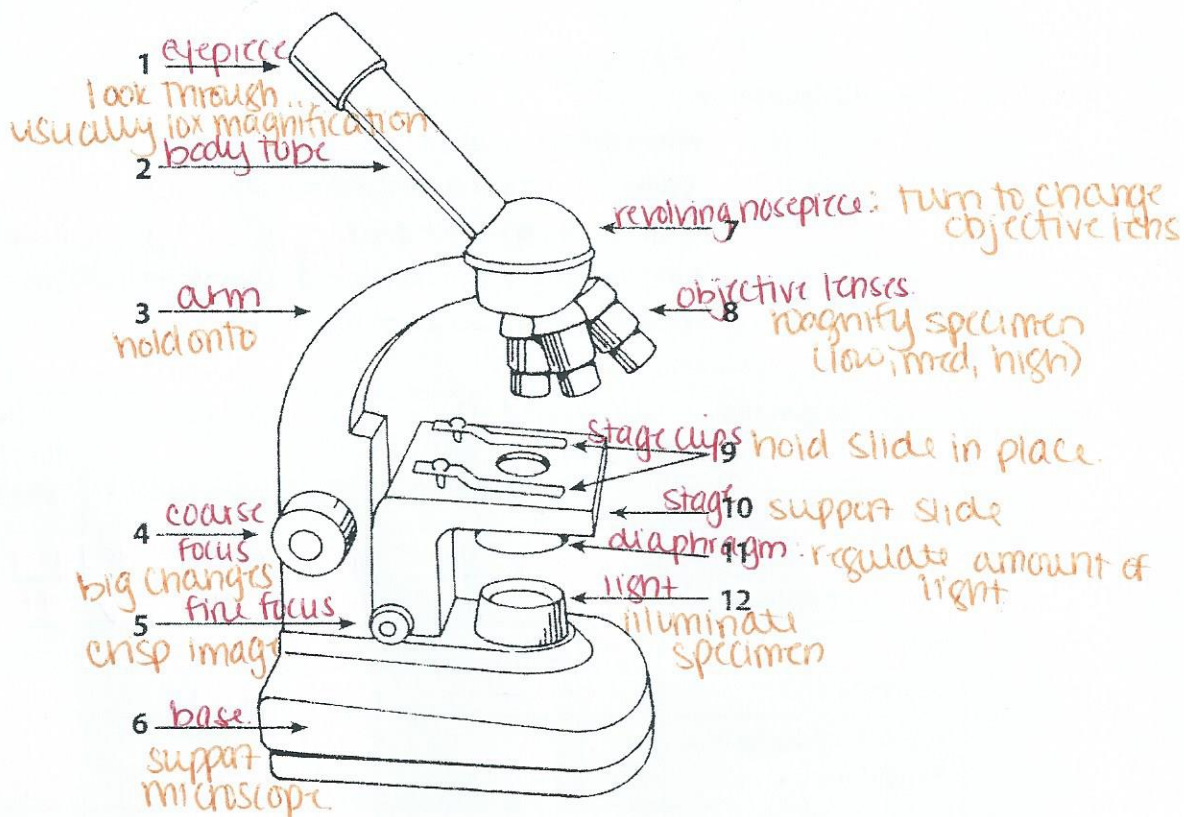 1 eyepiece
look through..
usually 10x magnification
2 body tube
3 arm
hold onto
4 coarse
focus
big changes
5 fine focus
crisp image
6 base.
support
microscope
7 revolving nosepiece: turn to change
objective lens
8 objective lenses.
magnify specimen
(low, med, high)
9 stage clips hold slide in place.
10 stage support slide
11 diaphragm: regulate amount of
light
12 light
illuminate
specimen